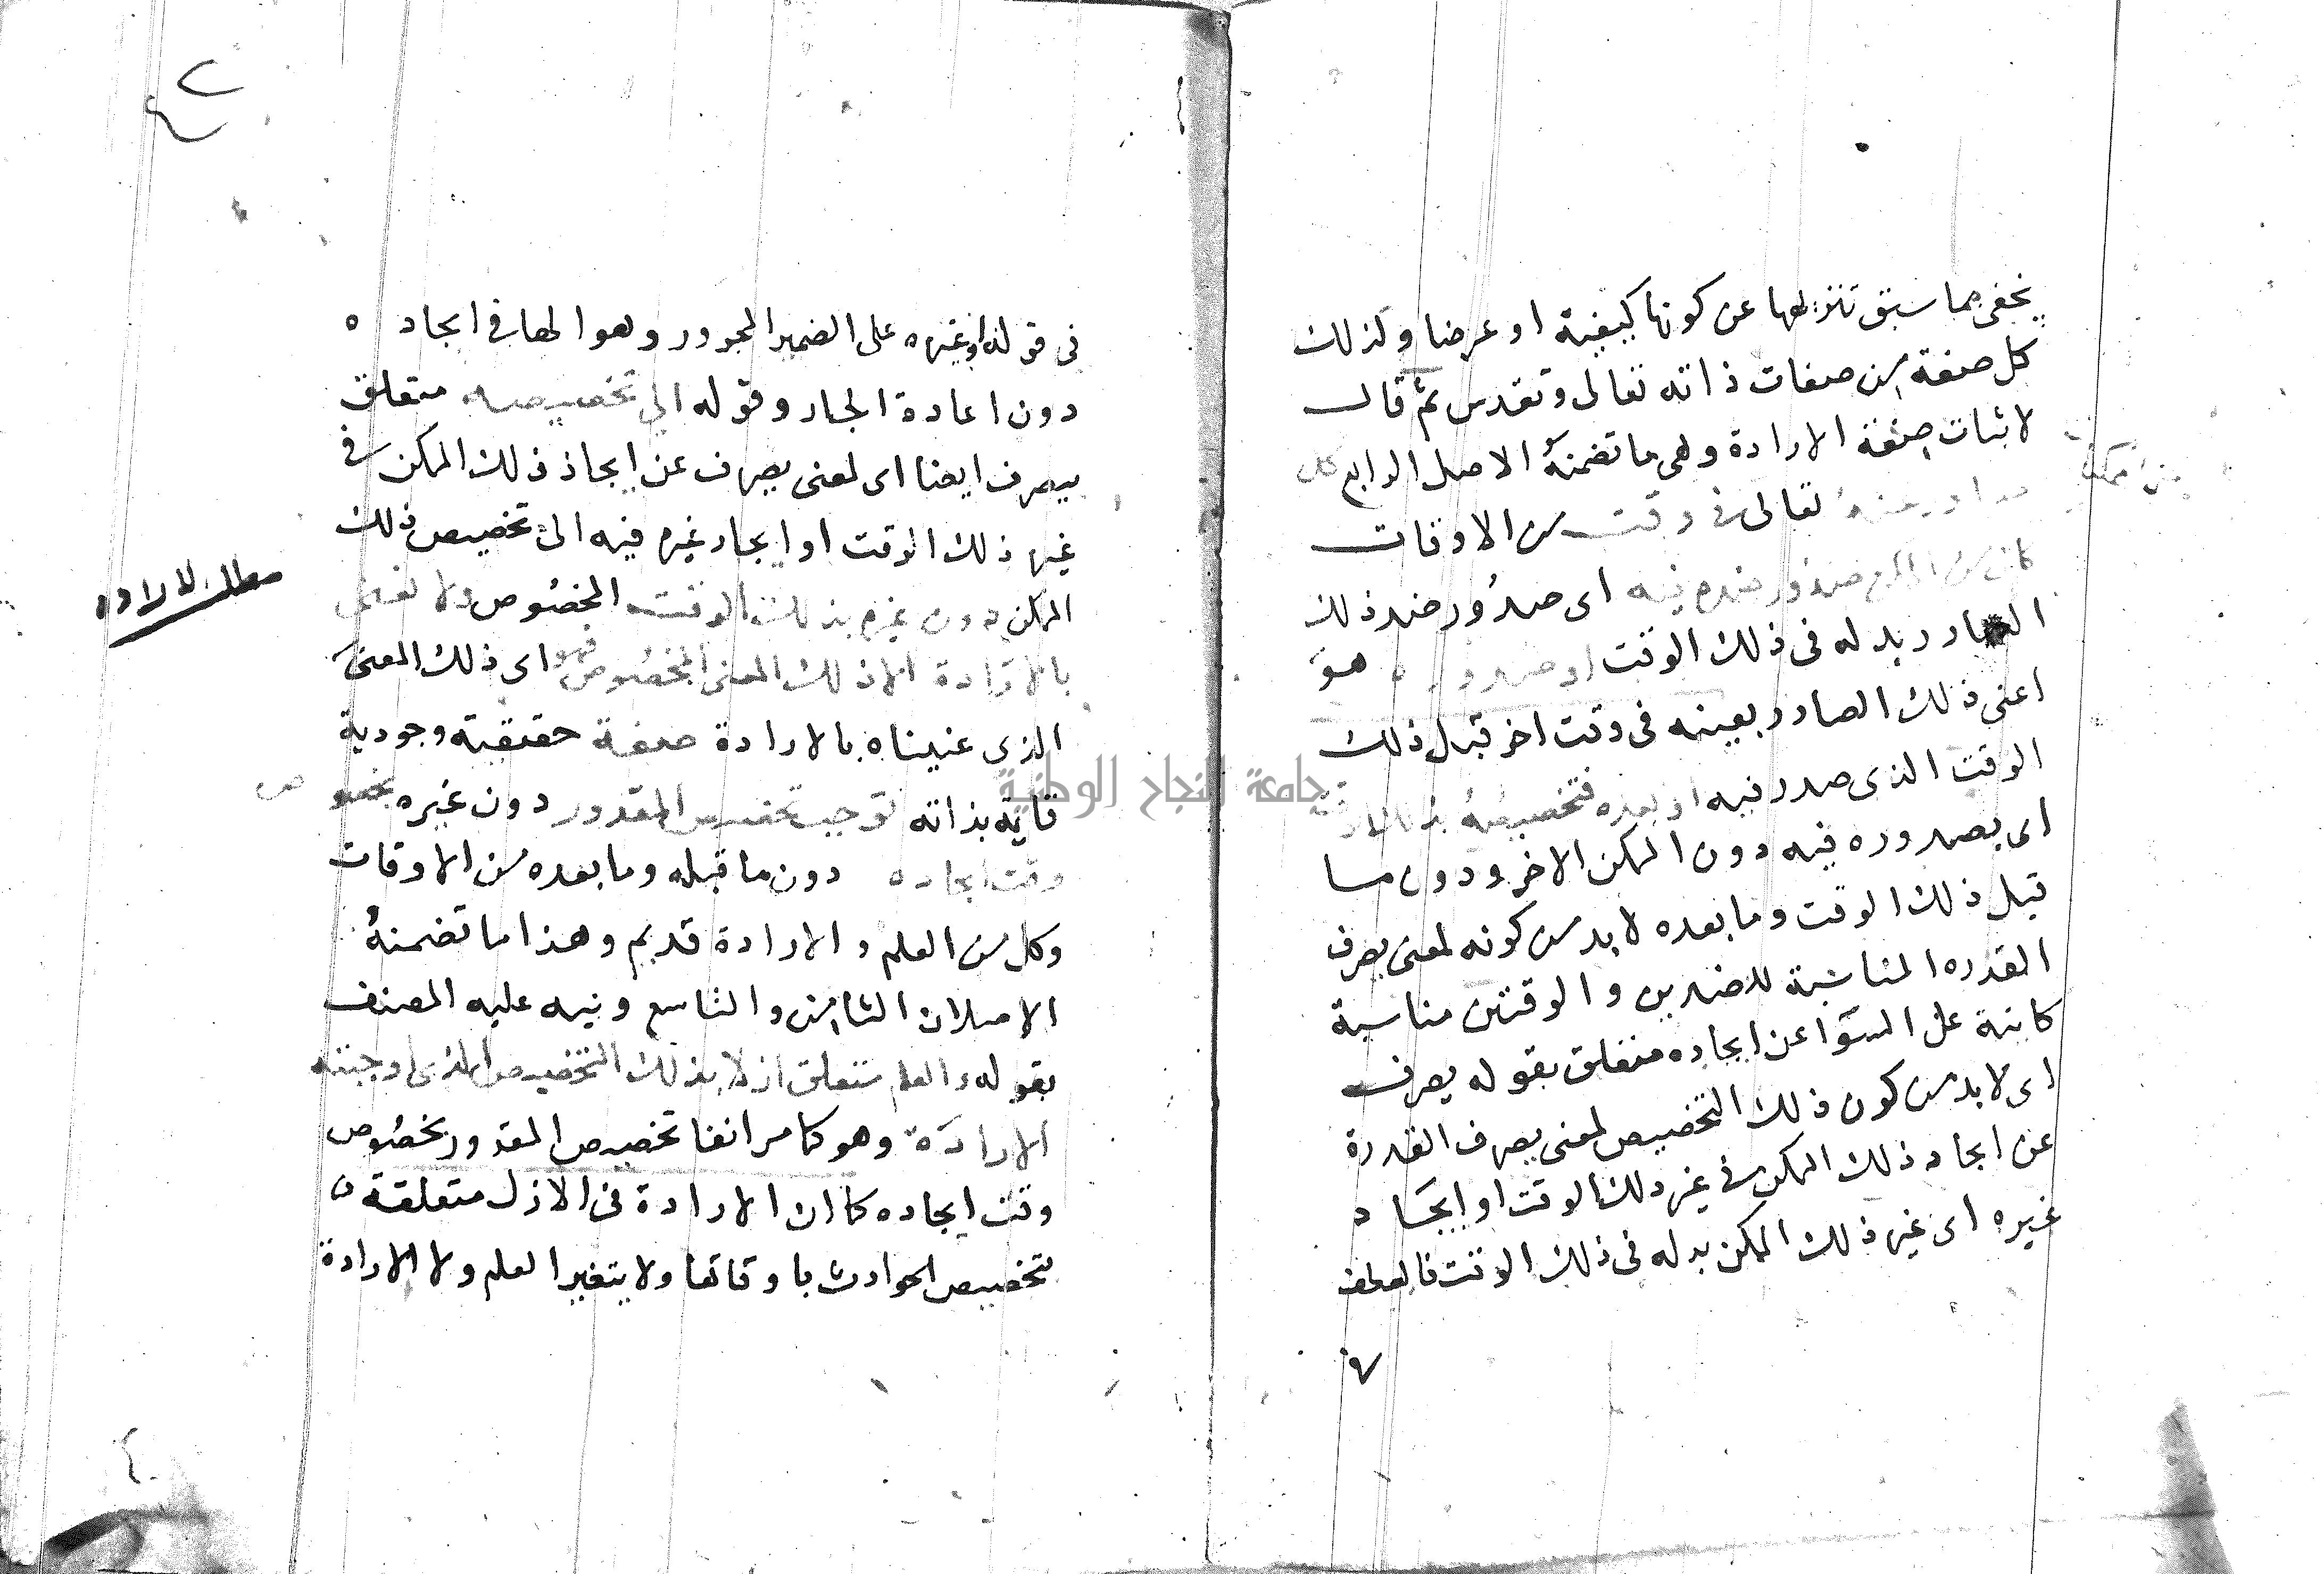 يخفى مما سبق تنزيهها عن كونها كيفية او عرضا وكذلك
كل صفة من صفات ذاته تعالى وتقدس ثم قال
لاثبات صفة الارادة وهى ما تضمنه الاصل الرابع كل
تعالى فى وقت من الاوقات
كان من الممكن صدور ضده فيه اى صدور ضد ذلك
الصادر بدله فى ذلك الوقت او صدوره هو
اعنى ذلك الصادر بعينه فى وقت اخر قبل ذلك
الوقت الذى صدر فيه او بعده فتخصيصه
اى بصدوره فيه دون الممكن الاخر ودون ما
قبل ذلك الوقت وما بعده لا بد من كونه لمعنى يصرف
القدره المناسبة للضدين والوقتين مناسبة
كاينة على السوا عن ايجاده متعلق بقوله يصرف
اى لا بد من كون ذلك التخصيص لمعنى يصرف القدرة
عن ايجاد ذلك الممكن فى غير ذلك الوقت او ايجاد
غيره اى غير ذلك الممكن بدله فى ذلك الوقت فالعطف
٧
فى قوله او غيره على الضمير المجرور وهو الها فى ايجاده
دون اعادة الجار وقوله الى تخصيصه متعلق
بيصرف ايضا اى لمعنى يصرف عن ايجاد ذلك الممكن فى
غير ذلك الوقت او ايجاد غيره فيه الى تخصيص ذلك
الممكن دون غيره بذلك الوقت المخصوص ولا نعنى
بالارادة الا ذلك المعنى المخصوص فهو اى ذلك المعنى
الذى عنيناه بالارادة صفة حقيقية وجودية
قاية بذاته توجب تخصيص المقدور دون غيره بخصوص
وقت ايجاده دون ما قبله وما بعده من الاوقات
وكل من العلم والارادة قديم وهذا ما تضمنه
الاصلان الثامن والتاسع ونبه عليه المصنف
بقوله والعلم متعلق ازلا بذلك التخصيص الذى اوجبته
الارادة وهو كما مر انفا تخصيص المقدور بخصوص
وقت ايجاده كما ان الارادة فى الازل متعلقة
بتخصيص الحوادث باوقاتها ولا يتغير العلم ولا الارادة
مطلب الاراده
جامعة النجاح الوطنية